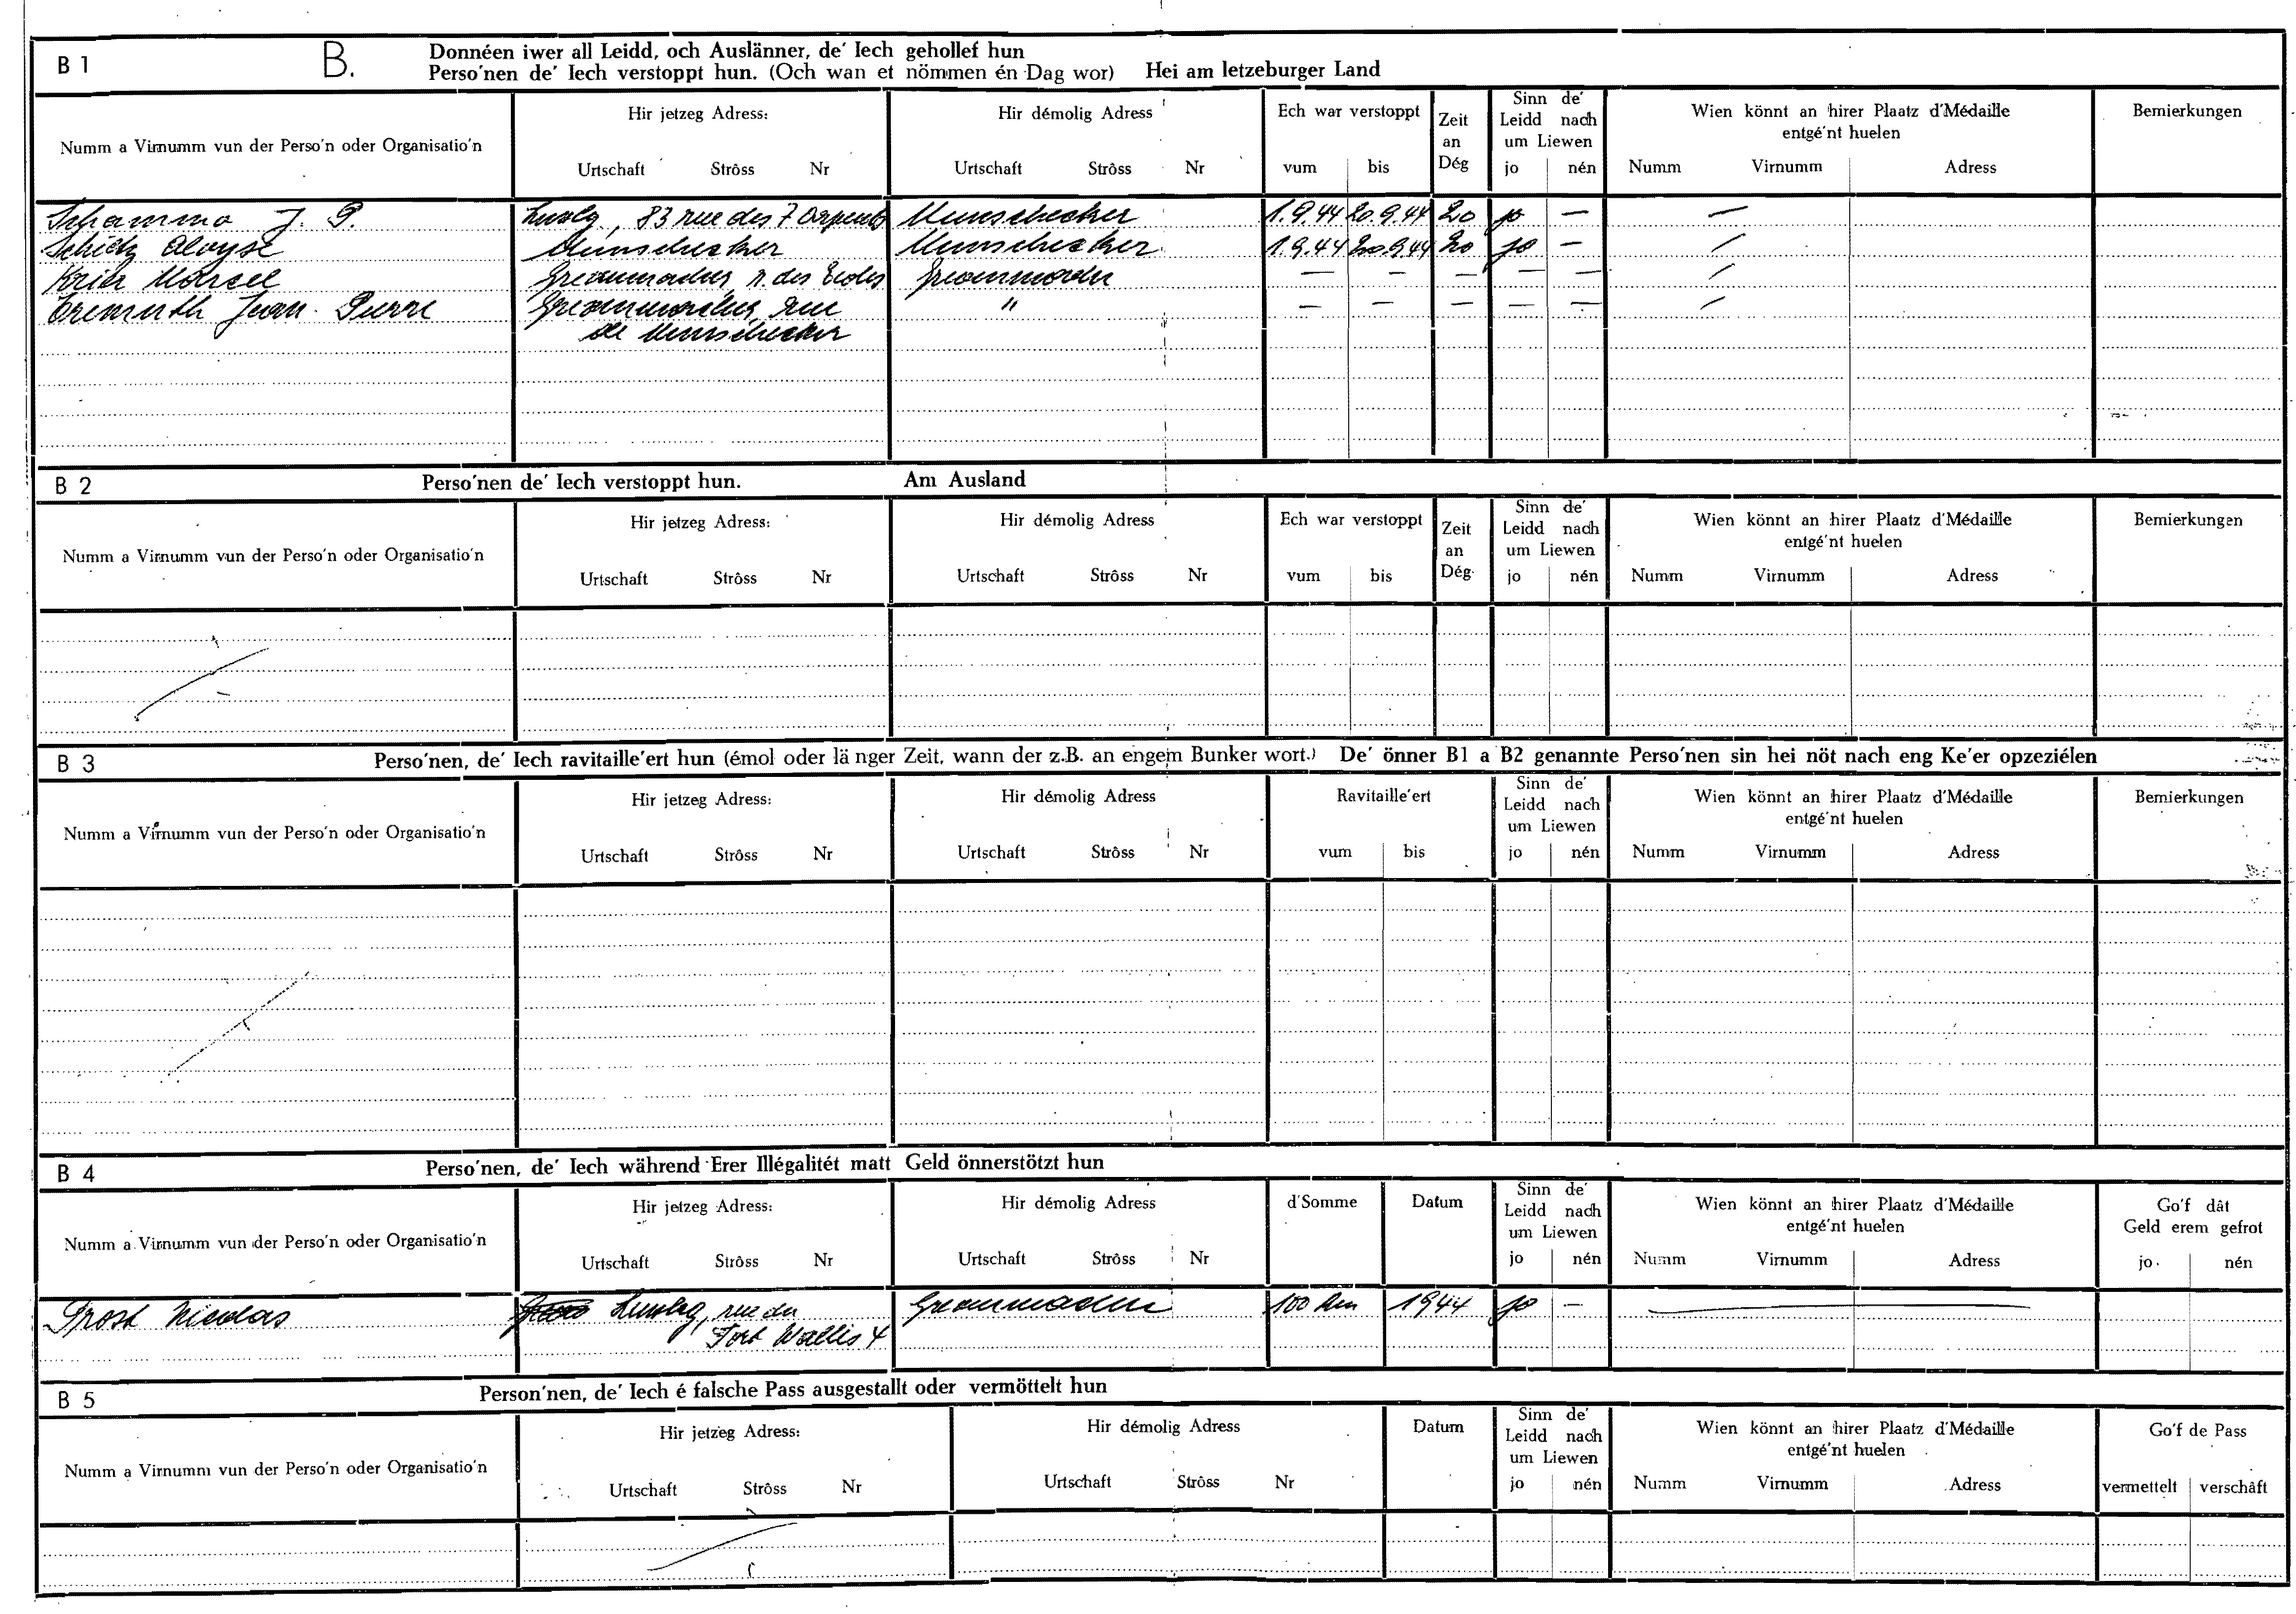 B 1 B. Donnéen iwer all Leidd, och Auslänner, de' Iech gehollef hun
Perso'nen de' Iech verstoppt hun. (Och wan et nömmen én Dag wor) Hei am letzeburger Land
Numm a Virnumm vun der Perso'n oder Organisatio'n Hir jetzeg Adress: Hir démolig Adress Ech war verstoppt Zeit an Dég Sinn de' Leidd nach um Liewen Wien könnt an hirer Plaatz d'Médaille entgé'nt huelen Bemierkungen
Urtschaft Strôss Nr Urtschaft Strôss Nr vum bis jo nén Numm Virnumm Adress
Schammo J. P. Luxbg, 83 rue des 7 Arpents Munschecker 1.9.44 20.9.44 20 jo — —
Schietz Aloyse Munschecker Munschecker 1.9.44 20.9.44 20 jo — —
Krier Marcel Grevenmacher, r. des Ecoles Grevenmacher — — — — — —
Jean-Pierre Grevenmacher, rue " — — — — — —
de Munschecker
B 2 Perso'nen de' Iech verstoppt hun. Am Ausland
Numm a Virnumm vun der Perso'n oder Organisatio'n Hir jetzeg Adress: Hir démolig Adress Ech war verstoppt Zeit an Dég. Sinn de' Leidd nach um Liewen Wien könnt an hirer Plaatz d'Médaille entgé'nt huelen Bemierkungen
Urtschaft Strôss Nr Urtschaft Strôss Nr vum bis jo nén Numm Virnumm Adress
B 3 Perso'nen, de' Iech ravitaille'ert hun (émol oder länger Zeit, wann der z.B. an engem Bunker wort.) De' önner B1 a B2 genannte Perso'nen sin hei nöt nach eng Ke'er opzeziélen
Numm a Virnumm vun der Perso'n oder Organisatio'n Hir jetzeg Adress: Hir démolig Adress Ravitaille'ert Sinn de' Leidd nach um Liewen Wien könnt an hirer Plaatz d'Médaille entgé'nt huelen Bemierkungen
Urtschaft Strôss Nr Urtschaft Strôss Nr vum bis jo nén Numm Virnumm Adress
B 4 Perso'nen, de' Iech während Erer Illégalitét matt Geld önnerstötzt hun
Numm a Virnumm vun der Perso'n oder Organisatio'n Hir jetzeg Adress: Hir démolig Adress d'Somme Datum Sinn de' Leidd nach um Liewen Wien könnt an hirer Plaatz d'Médaille entgé'nt huelen Go'f dât Geld erem gefrot
Urtschaft Strôss Nr Urtschaft Strôss Nr jo nén Numm Virnumm Adress jo. nén
Prost Nicolas Luxbg, rue du Grevenmacher 100 Rm 1944 jo — —
Fort Wallis 4
B 5 Person'nen, de' Iech é falsche Pass ausgestallt oder vermöttelt hun
Numm a Virnumm vun der Perso'n oder Organisatio'n Hir jetzeg Adress: Hir démolig Adress Datum Sinn de' Leidd nach um Liewen Wien könnt an hirer Plaatz d'Médaille entgé'nt huelen Go'f de Pass
Urtschaft Strôss Nr Urtschaft Strôss Nr jo nén Numm Virnumm Adress vermettelt verschâft